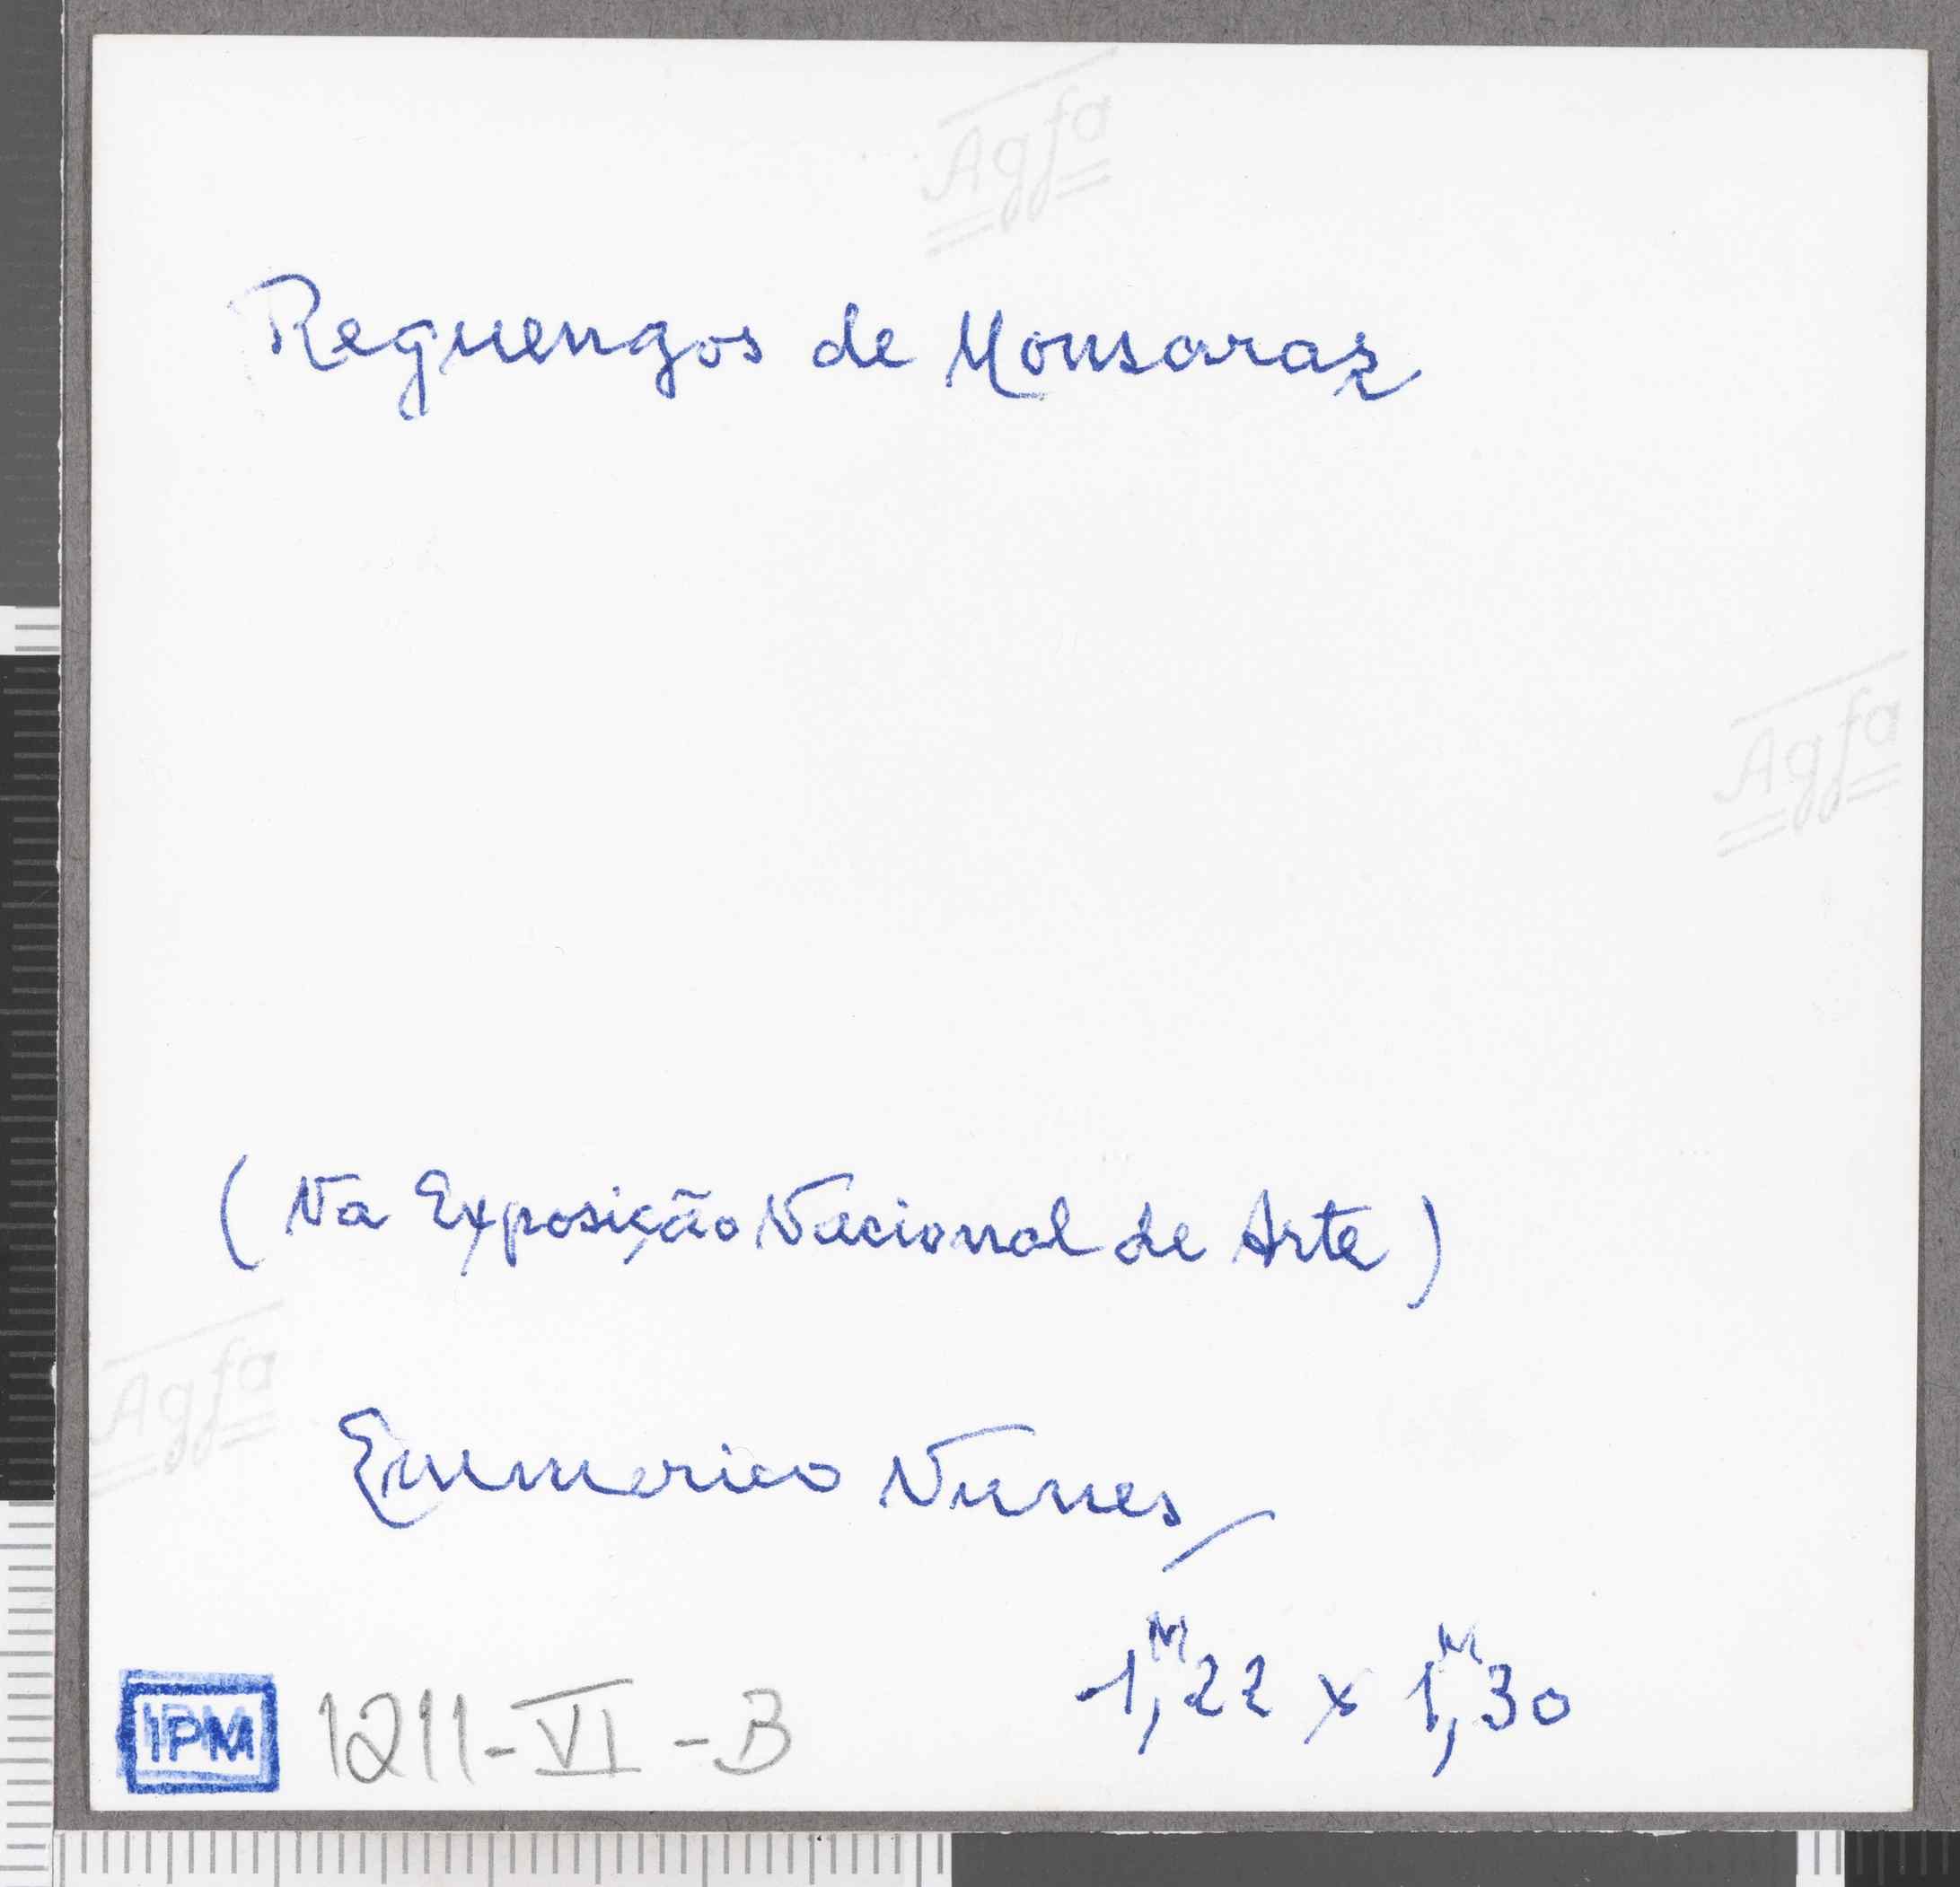 Agfa
Reguengos de Monsaraz
Agfa
(Na Exposição Nacional de Arte)
Agfa
Emmerico Nunes
1,ᴹ22 x 1,ᴹ30
IPM 1211-VI-B